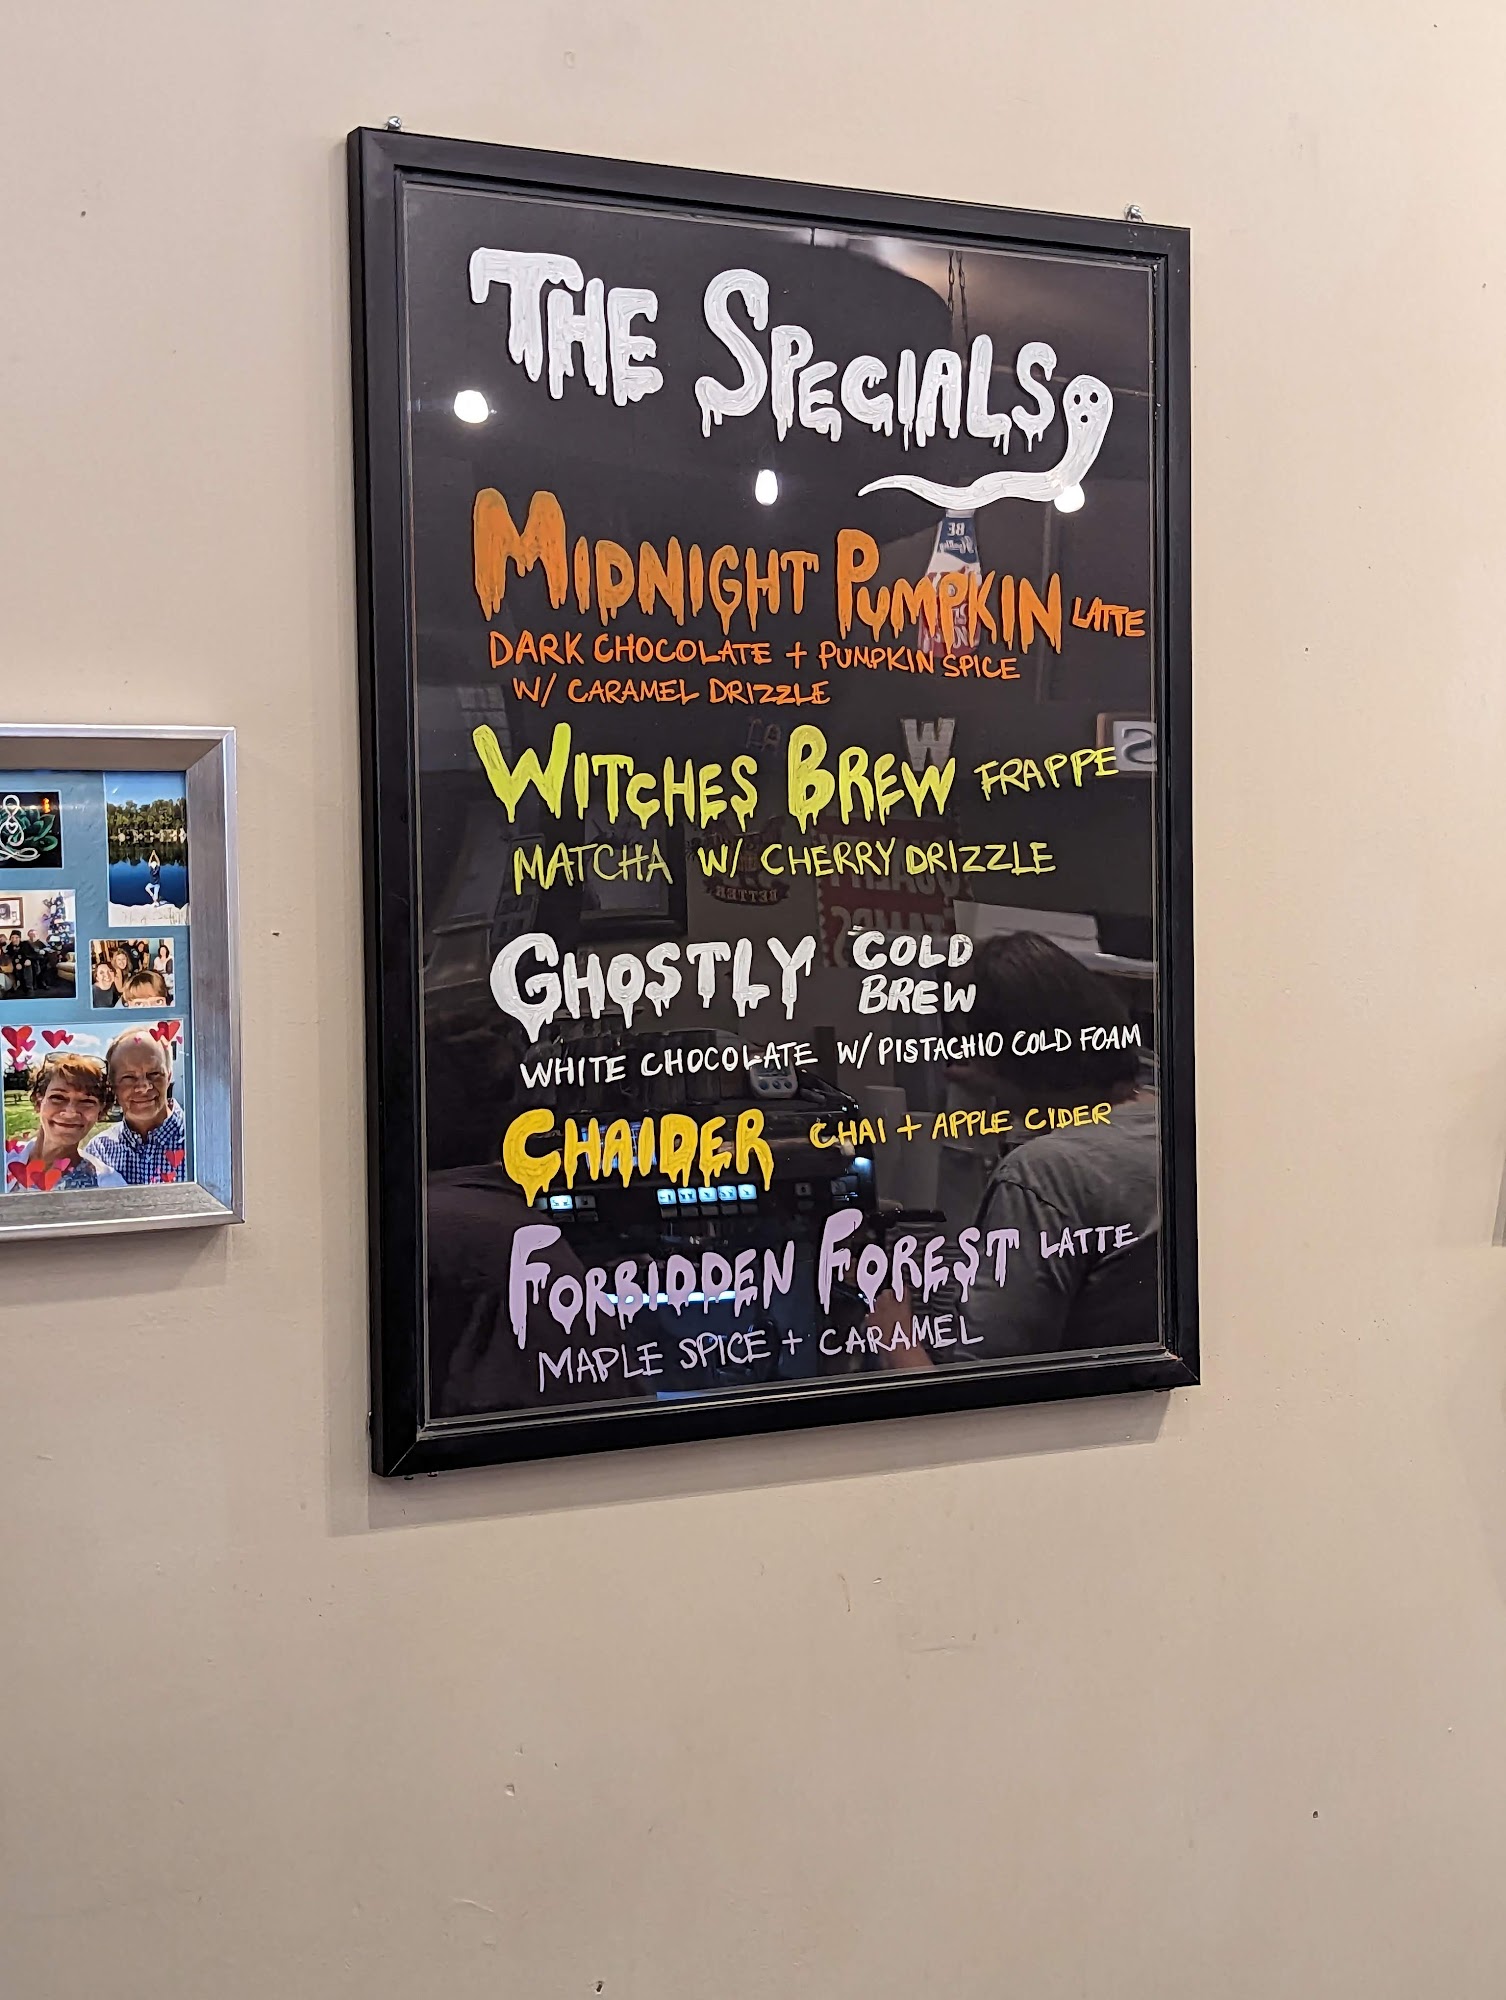 THE SPECIALS
MIDNIGHT PUMPKIN LATTE
DARK CHOCOLATE + PUMPKIN SPICE
W/ CARAMEL DRIZZLE
WITCHES BREW FRAPPE
MATCHA W/ CHERRY DRIZZLE
GHOSTLY COLD
BREW
WHITE CHOCOLATE W/ PISTACHIO COLD FOAM
CHAIDER CHAI + APPLE CIDER
FORBIDDEN FOREST LATTE
MAPLE SPICE + CARAMEL